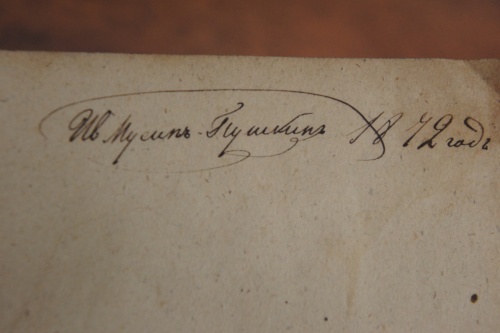 Ив Мусинъ-Пушкинъ 1872 годъ